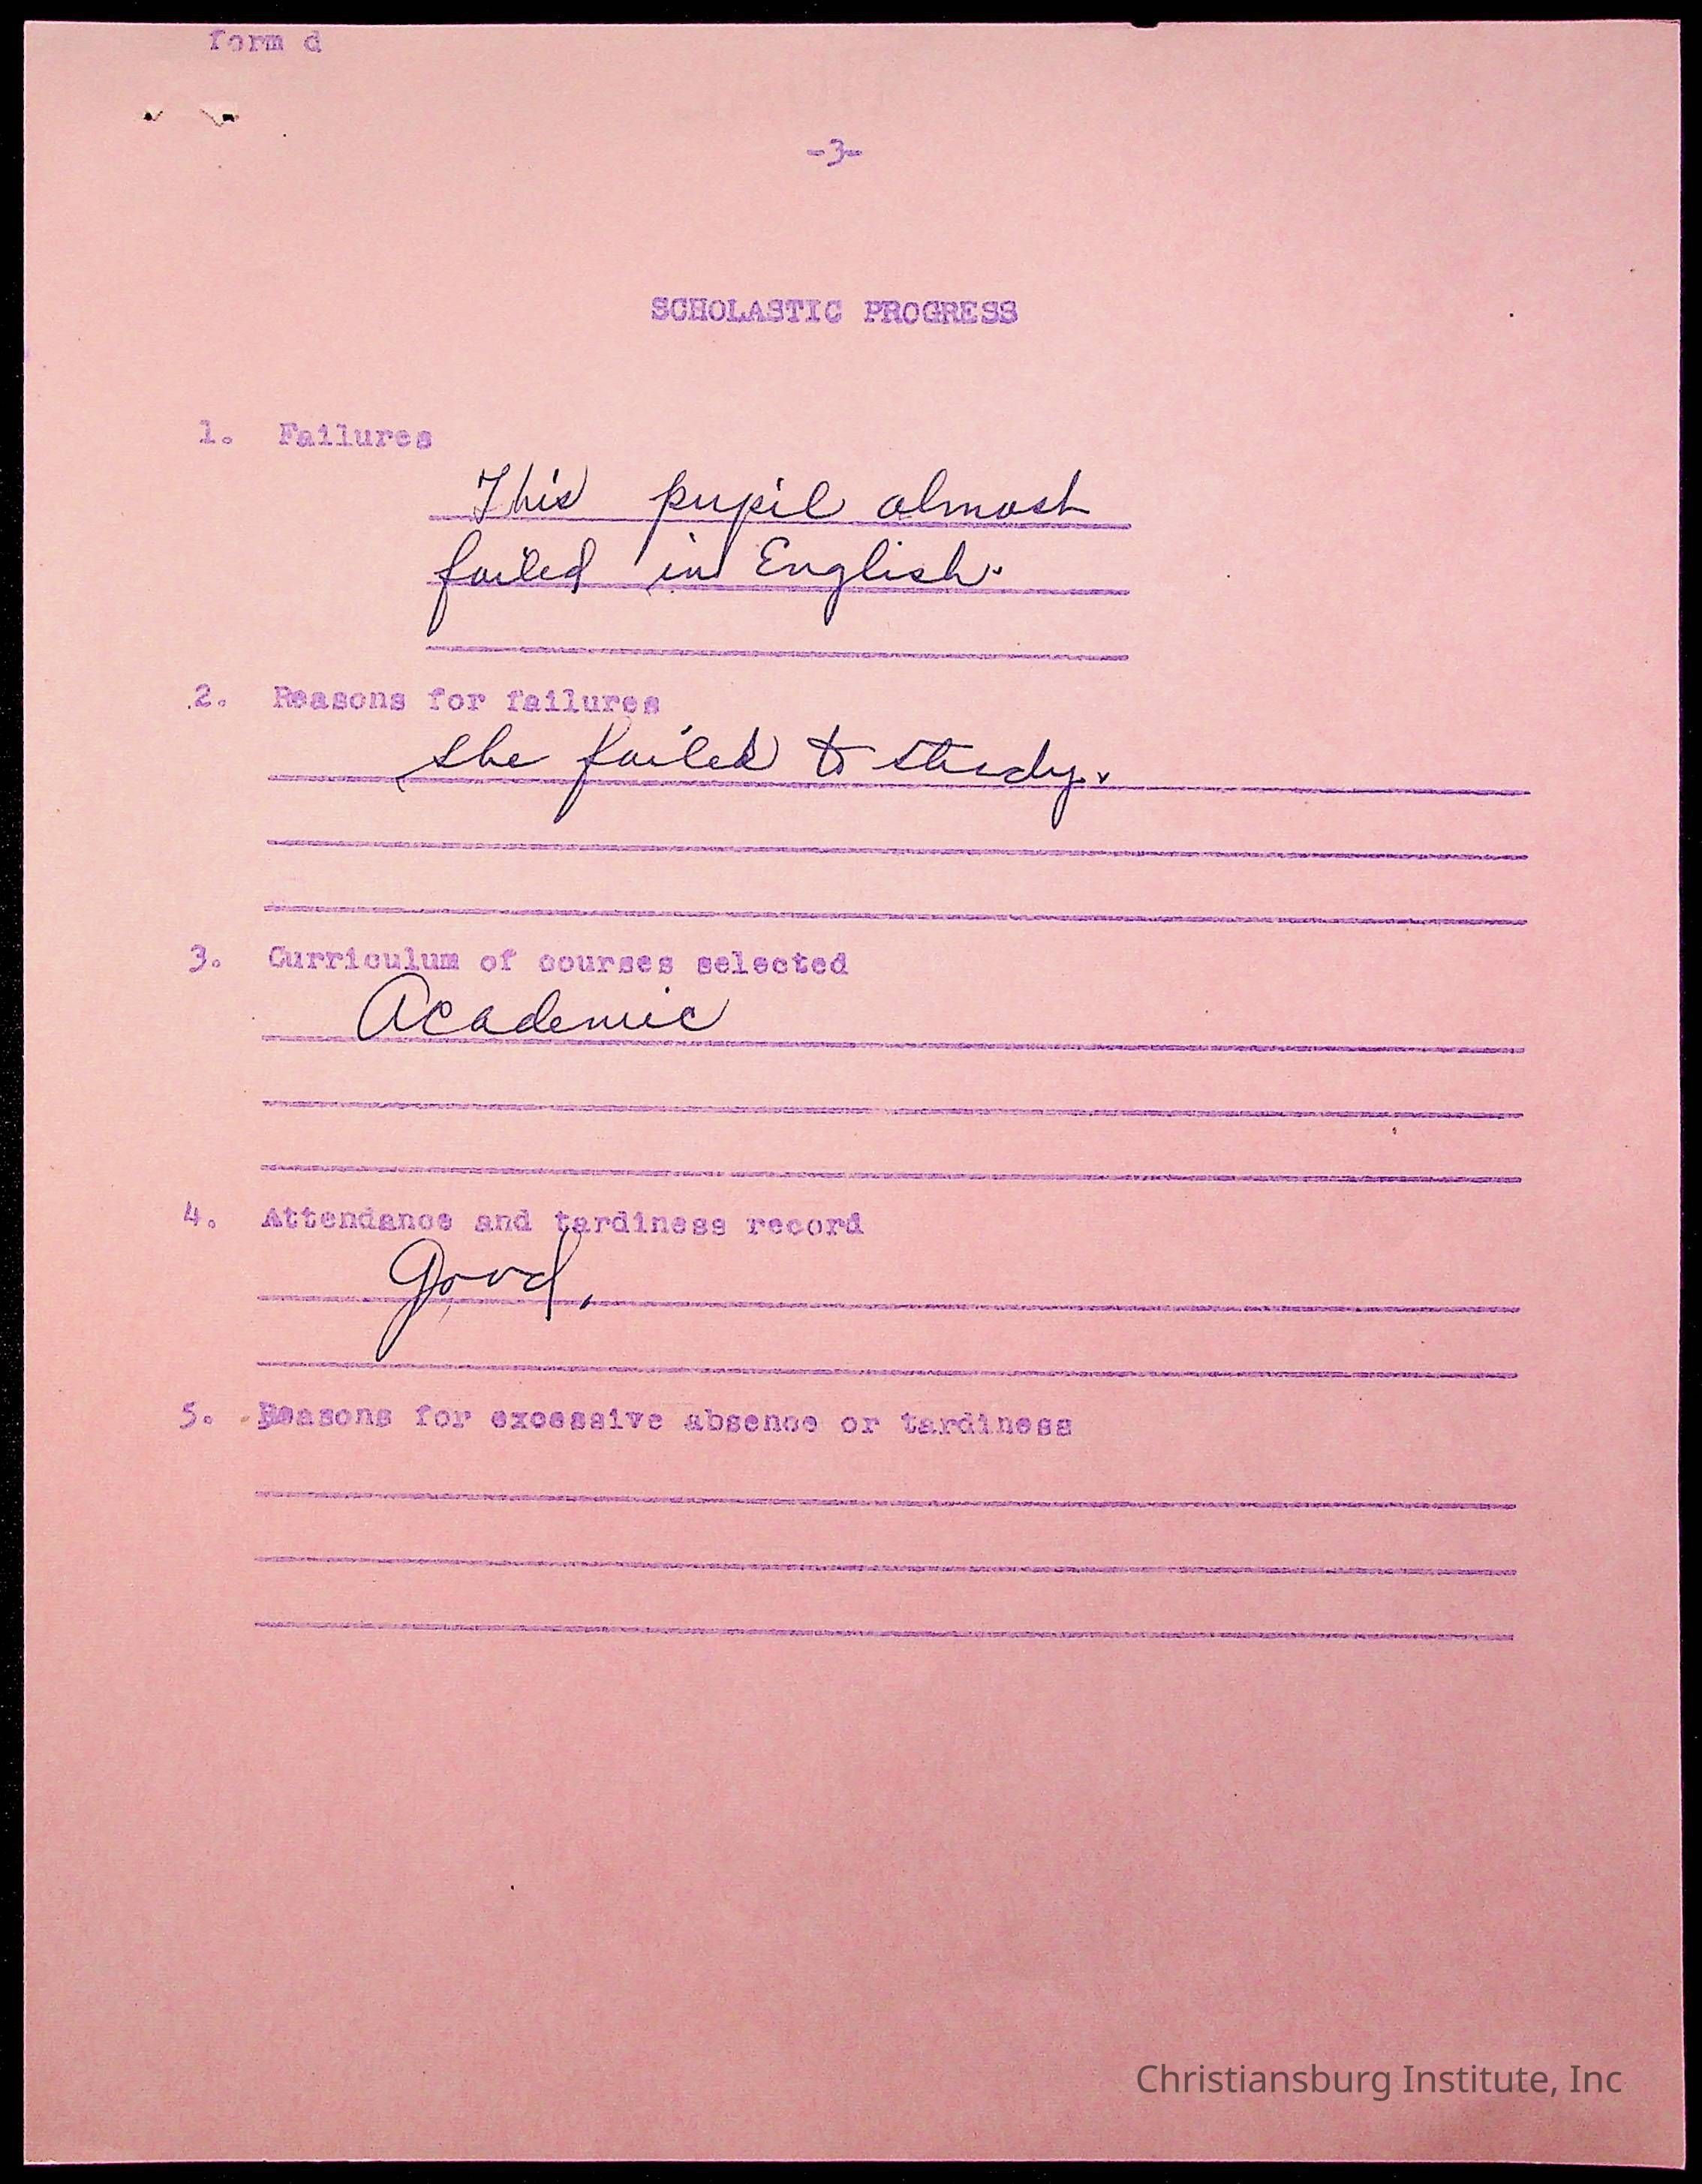 form d
-3-
SCHOLASTIC PROGRESS
1. Failures
This pupil almost
failed in English.
2. Reasons for failures
She failed to study.
3. Curriculum of courses selected
Academic
4. Attendance and tardiness record
Good.
5. Reasons for excessive absence or tardiness
Christiansburg Institute, Inc